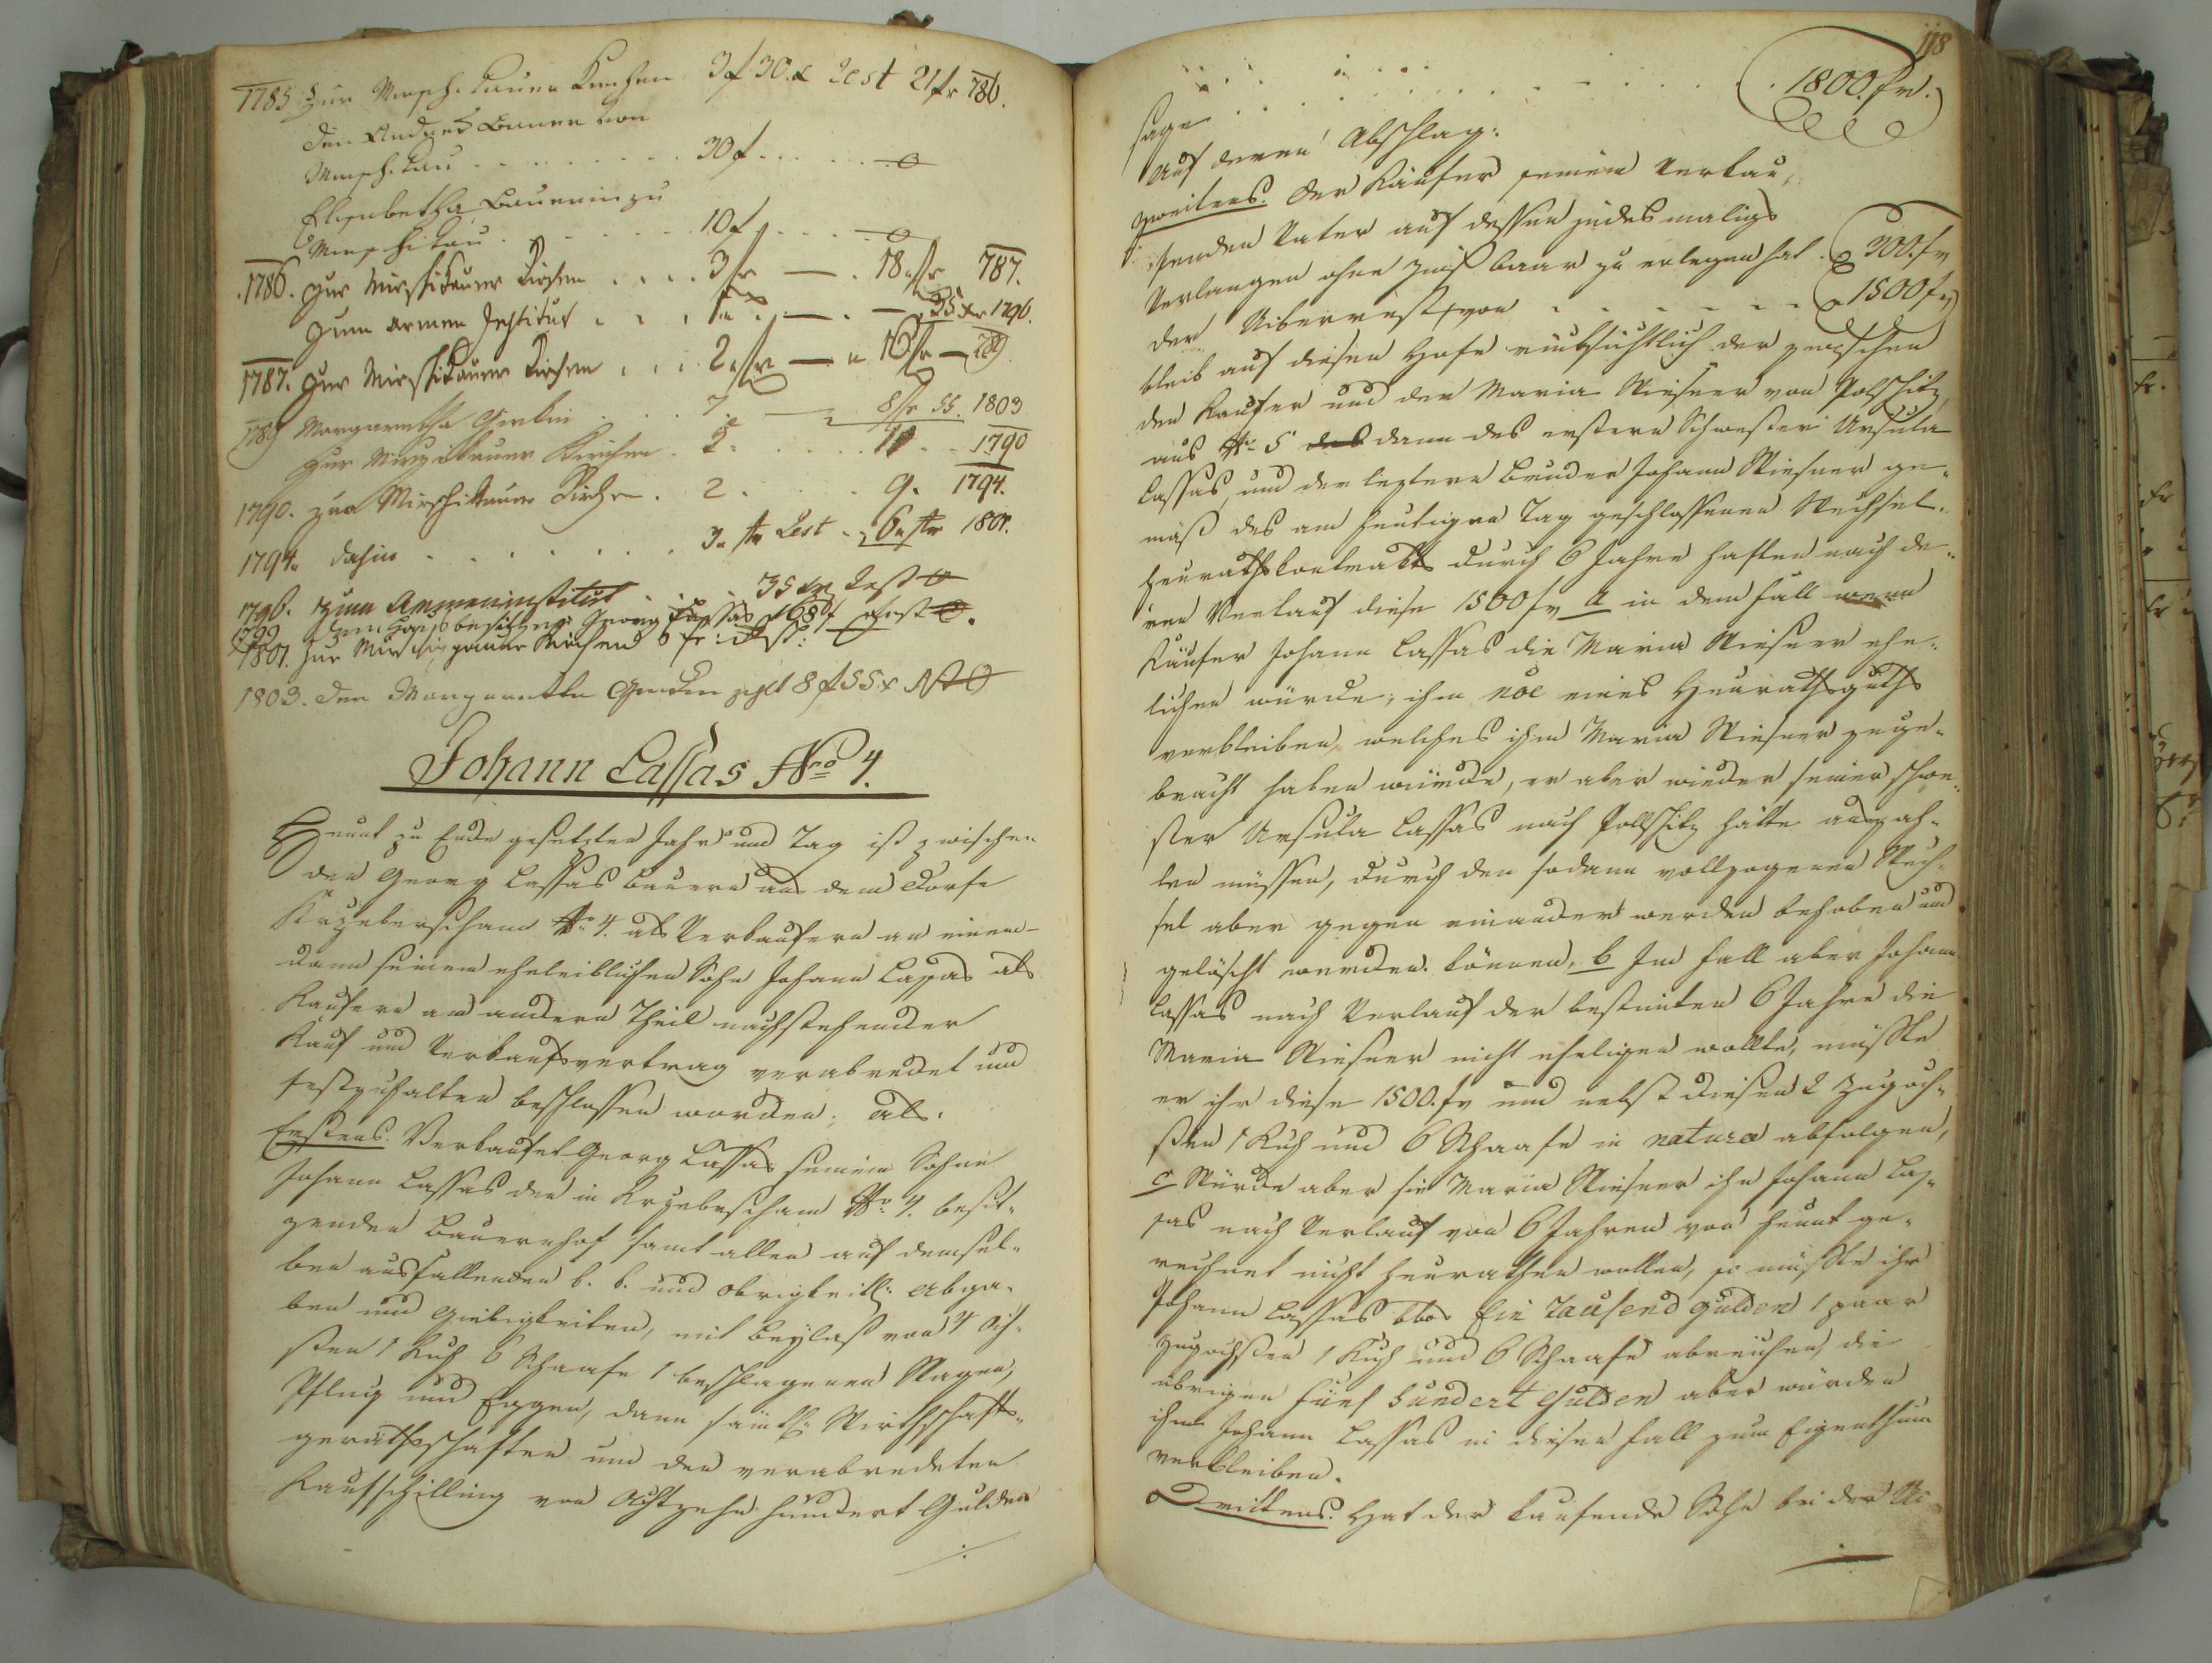 1785 Zur Mirschikauer Kirchen 3 f 30 x Rest 21 fr 786.
den Andres Bauer von
Mirschikau . . . . . . . . 30 f . . . . . 0
Elisabetha Bauerin zu
Mirschikau . . . . . . . 10 f . . . . 0
1786. Zur Mirschikauer Kirchen . . . . 3 fr — . 18 fr 787.
Zum armen Institut . . . — . — 35 xr 1796.
1787. Zur Mirschikauer Kirchen . . . 2 fr — 16 fr — 789
1789 Margaretha . . . . 7. — 8 fr 55. 1803
Zur Mirschikauer Kirchen . 2. . . . . 11 . . 1790
1790. Zur Mirschikauer Kirche . 2 . . . . 9. 1794.
1794. dahin . . . . . . . 3 fr Rest . 6 fr 1801.
1796. Zum Armeninstitut . . . 35 xr Rest 0
1799 dem Hausbesitzer Georg Lassas 168 f Rest 0.
1801. Zur Kirchen 6 fr Rest:
1803. der Margaretha zahlt 8 f 55 x Rst 0
Johann Lassas Nro 4.
Heunt zu Ende gesetzten Jahr und Tag ist zwischen
den Georg Lassas Bauern aus dem Dorfe
Krzeberscham No 4. als Verkaufern an einem
dann seinem eheleiblichen Sohn Johann Lassas als
Kaufern am andern Theil nachstehender
Kauf und Verkaufsvertrag verabredet und
festzuhalten beschlossen worden; als.
Erstens. Verkaufet Georg Lassas seinem Sohne
Johann Lassas den in Krzeberscham No 4. besit-
zenden Bauernhof samt allen auf demsel-
ben ausfallenden k. k. und obrigkeitl: Abga-
ben und Giebigkeiten, mit Beylaß von 4 Och-
sen 1 Kuh 6 Schaafe 1 beschlagenen Wagen,
Pflug und Eggen, dann sämtl: Wirthschafts-
geräthschaften um den verabredeten
Kaufschilling von Achtzehn hundert Gulden
118
sage . . . . . . . . . . 1800. fr.
Auf deren Abschlag:
Zweitens. Der Käufer seinem Verkau-
fenden Vater auf dessen jedesmaliges
Verlangen ohne Zins baar zu erlegen hat . 300. fr
der Uiberrest von . . . . . . 1500 fr
bleib auf diesen Hofe rücksichtlich der zwischen
den Kaufer und der Maria Wiesner von Polschitz
aus No 5 des dann des erstern Schwester Ursula
Lassas, und der leztern Bruder Johann Wiesner ge-
mäß des am heutigen Tag geschlossenen Wechsel-
heurathskontrakts durch 6 Jahre haften nach de-
ren Verlauf diese 1500 fr a in dem fall wenn
Käufer Johann Lassas die Maria Wiesner ehe-
lichen würde, ihm noe eines Heurathsguths
verbleiben, welches ihm Maria Wiesner zuge-
bracht haben würde, er aber wieder seiner Schwe-
ster Ursula Lassas nach Pollschitz hätte auszah-
len müssen, durch den sodann vollzogenen Wech-
sel aber gegen einander werden behoben und
gelöscht werden können, b Im fall aber Johann
Lassas nach Verlauf der bestimten 6 Jahre die
Maria Wiesner nicht eheligen wollte, müßte
er ihr diese 1500. fr und nebst diesen 2 Zugoch-
sen 1 Kuh und 6 Schaafe in natura abfolgen,
c Würde aber sie Maria Wiesner ihn Johann Las-
sas nach Verlauf von 6 Jahren von heunt ge-
rechnet nicht heurathen wollen, so müßte ihr
Johann Lassas blos Ein Tausend Gulden 1 paar
Zugochsen 1 Kuh und 6 Schaafe abreichen, die
übrigen fünf hundert Gulden aber würden
ihm Johann Lassas in diesen fall zum Eigenthum
verbleiben.
Drittens. Hat der kaufende Sohn bei der